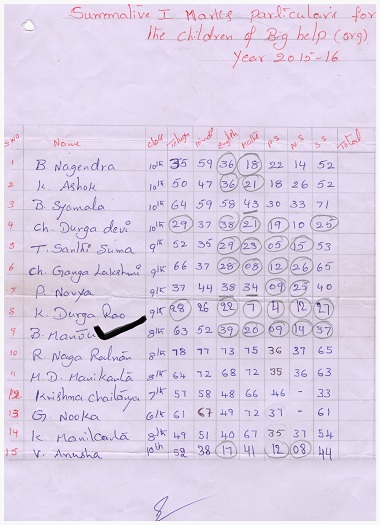 Summative I Marks particulars for
the children of Big help (org)
Year 2015-16
S.NO Name class Telugu Hindi English Maths P.S N.S S.S Total
1 B. Nagendra 10th 35 59 36 18 22 14 52
2 K. Ashok 10th 50 47 36 21 18 26 52
3 B. Syamala 10th 64 59 58 43 30 33 71
4 Ch. Durga devi 10th 29 37 38 21 19 10 25
5 T. Santhi Suma 9th 52 35 29 23 05 15 53
6 Ch. Ganga Lakshmi 9th 66 37 28 08 12 26 65
7 P. Navya 9th 37 44 38 34 09 25 40
8 K. Durga Rao 9th 28 26 22 7 4 12 27
9 B. 8th 63 52 39 20 09 14 37
10 R. Naga Ratnam 8th 78 77 73 75 36 37 65
11 M.D. Manikanta 8th 64 72 68 72 35 36 63
12 Krishna chaitanya 7th 57 58 48 66 46 - 33
13 G. Nooka 6th 61 67 49 72 37 - 61
14 K. Manikanta 8th 49 51 40 67 35 37 54
15 V. Anusha 10th 52 38 17 41 12 08 44